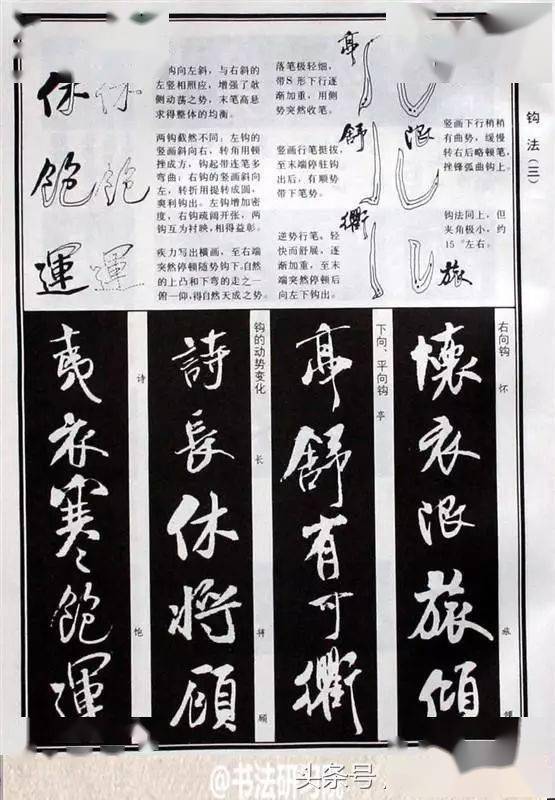 钩法(三)
竖画下行稍稍
有曲势,缓慢
转右后略顿笔,
挫锋弧曲钩上。
钩法同上,但
夹角极小,约
15°左右。
浪
旅
亭
舒
衢
落笔极轻细,
带S形下行逐
渐加重,用侧
势突然收笔。
竖画行笔挺拔,
至末端停驻钩
出后,有顺势
带下笔势。
逆势行笔,轻
快而舒展,逐
渐加重,至末
端停顿后
向左下钩出。
钩向左斜,与右斜的
左竖相照应,增强了敧
侧动荡之势,末笔高悬
求得整体的均衡。
两钩截然不同,左钩的
竖画斜向右,转角用顿
挫成方,钩起带连笔多
弯曲;右钩的竖画斜向
左,转折用提转成圆,
爽利钩出。左钩增加密
度,右钩疏阔开张,两
钩互为衬映,相得益彰。
疾力写出横画,至右端
突然停顿随势钩下。自然
的上凸和下弯的走之一
俯一仰,得自然天成之势。
休
飽
運
右向钩
怀
旅
倾
懷衣浪旅傾
下向、平向钩
亭
亭舒有可衢
钩的动势变化
长
将
顾
詩長休將顧
诗
饱
夷衣寒飽運
头条号
@书法研